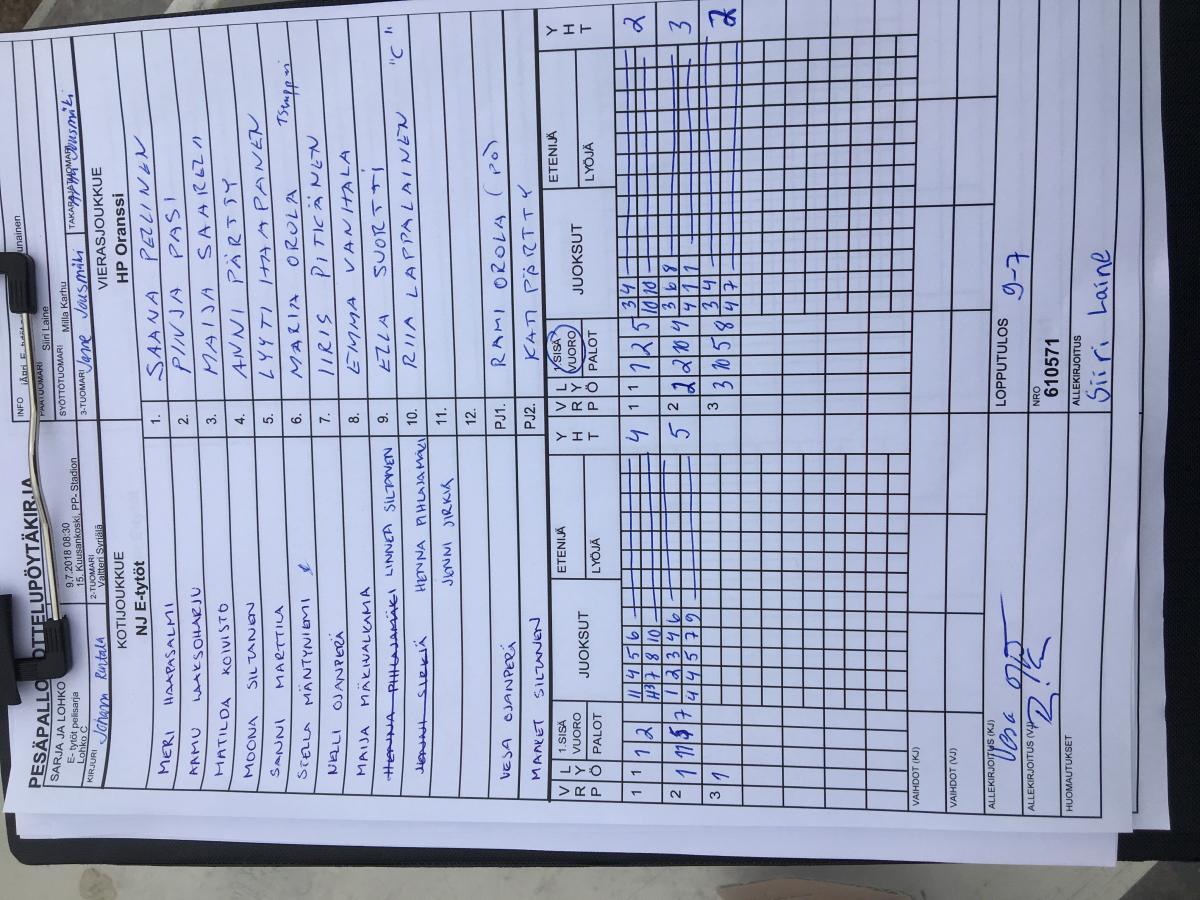 PESÄPALLO OTTELUPÖYTÄKIRJA
INFO
SARJA JA LOHKO
E- tytöt pelisarja
Lohko C
9.7.2018 08:30
15. Kuusankoski, PP- Stadion
PÄÄTUOMARI Siiri Laine
SYÖTTÖTUOMARI Milla Karhu
KIRJURI
2-TUOMARI
Valtteri Syrjälä
3-TUOMARI Janne Jousmäki
TAKARAJATUOMARI
KOTIJOUKKUE
NJ E-tytöt
VIERASJOUKKUE
HP Oranssi
MERI HAAPASALMI 1. SAANA PELLINEN
AAMU LAAKSOHARJU 2. PINJA PASI
MATILDA KOIVISTO 3. MAIJA SAARELA
MOONA SILTANEN 4. ANNI PÄRTTY
SANNI MARTTILA 5. LYYTI IHAAPANEN
STELLA MÄNTYNIEMI 6. MARIA OROLA
NELLI OJANPERÄ 7. IIRIS PITKÄNEN
MAIJA MÄKIVALKAMA 8. EMMA VANHALA
HENNA PIHLAJAMÄKI LINNEA SILTANEN 9. ELLA SUORTTI
JENNI SIRKIÄ HENNA PIHLAJAMÄKI 10. RIIA LAPPALAINEN "C"
JENNI SIRKIÄ 11.
12.
VESA OJANPERÄ PJ1. RAMI OROLA (PO)
MAARET SILTANEN PJ2. KATI PÄRTTY
V R P L Y Ö 1.SISÄ VUORO PALOT JUOKSUT ETENIJÄ LYÖJÄ Y H T V R P L Y Ö 1.SISÄ VUORO PALOT JUOKSUT ETENIJÄ LYÖJÄ Y H T
1 1 1 2 11 4 5 6 4 1 1 1 2 5 3 4 2
7 8 10 10 10
2 1 7 1 2 3 4 6 5 2 2 2 10 4 3 6 8 3
4 4 5 7 9 4 11 11
3 1 3 3 10 5 8 3 4 2
4 7
VAIHDOT (KJ)
VAIHDOT (VJ)
ALLEKIRJOITUS (KJ) Vesa
LOPPUTULOS 9-7
ALLEKIRJOITUS (VJ)
NRO
610571
HUOMAUTUKSET
ALLEKIRJOITUS
Siiri Laine